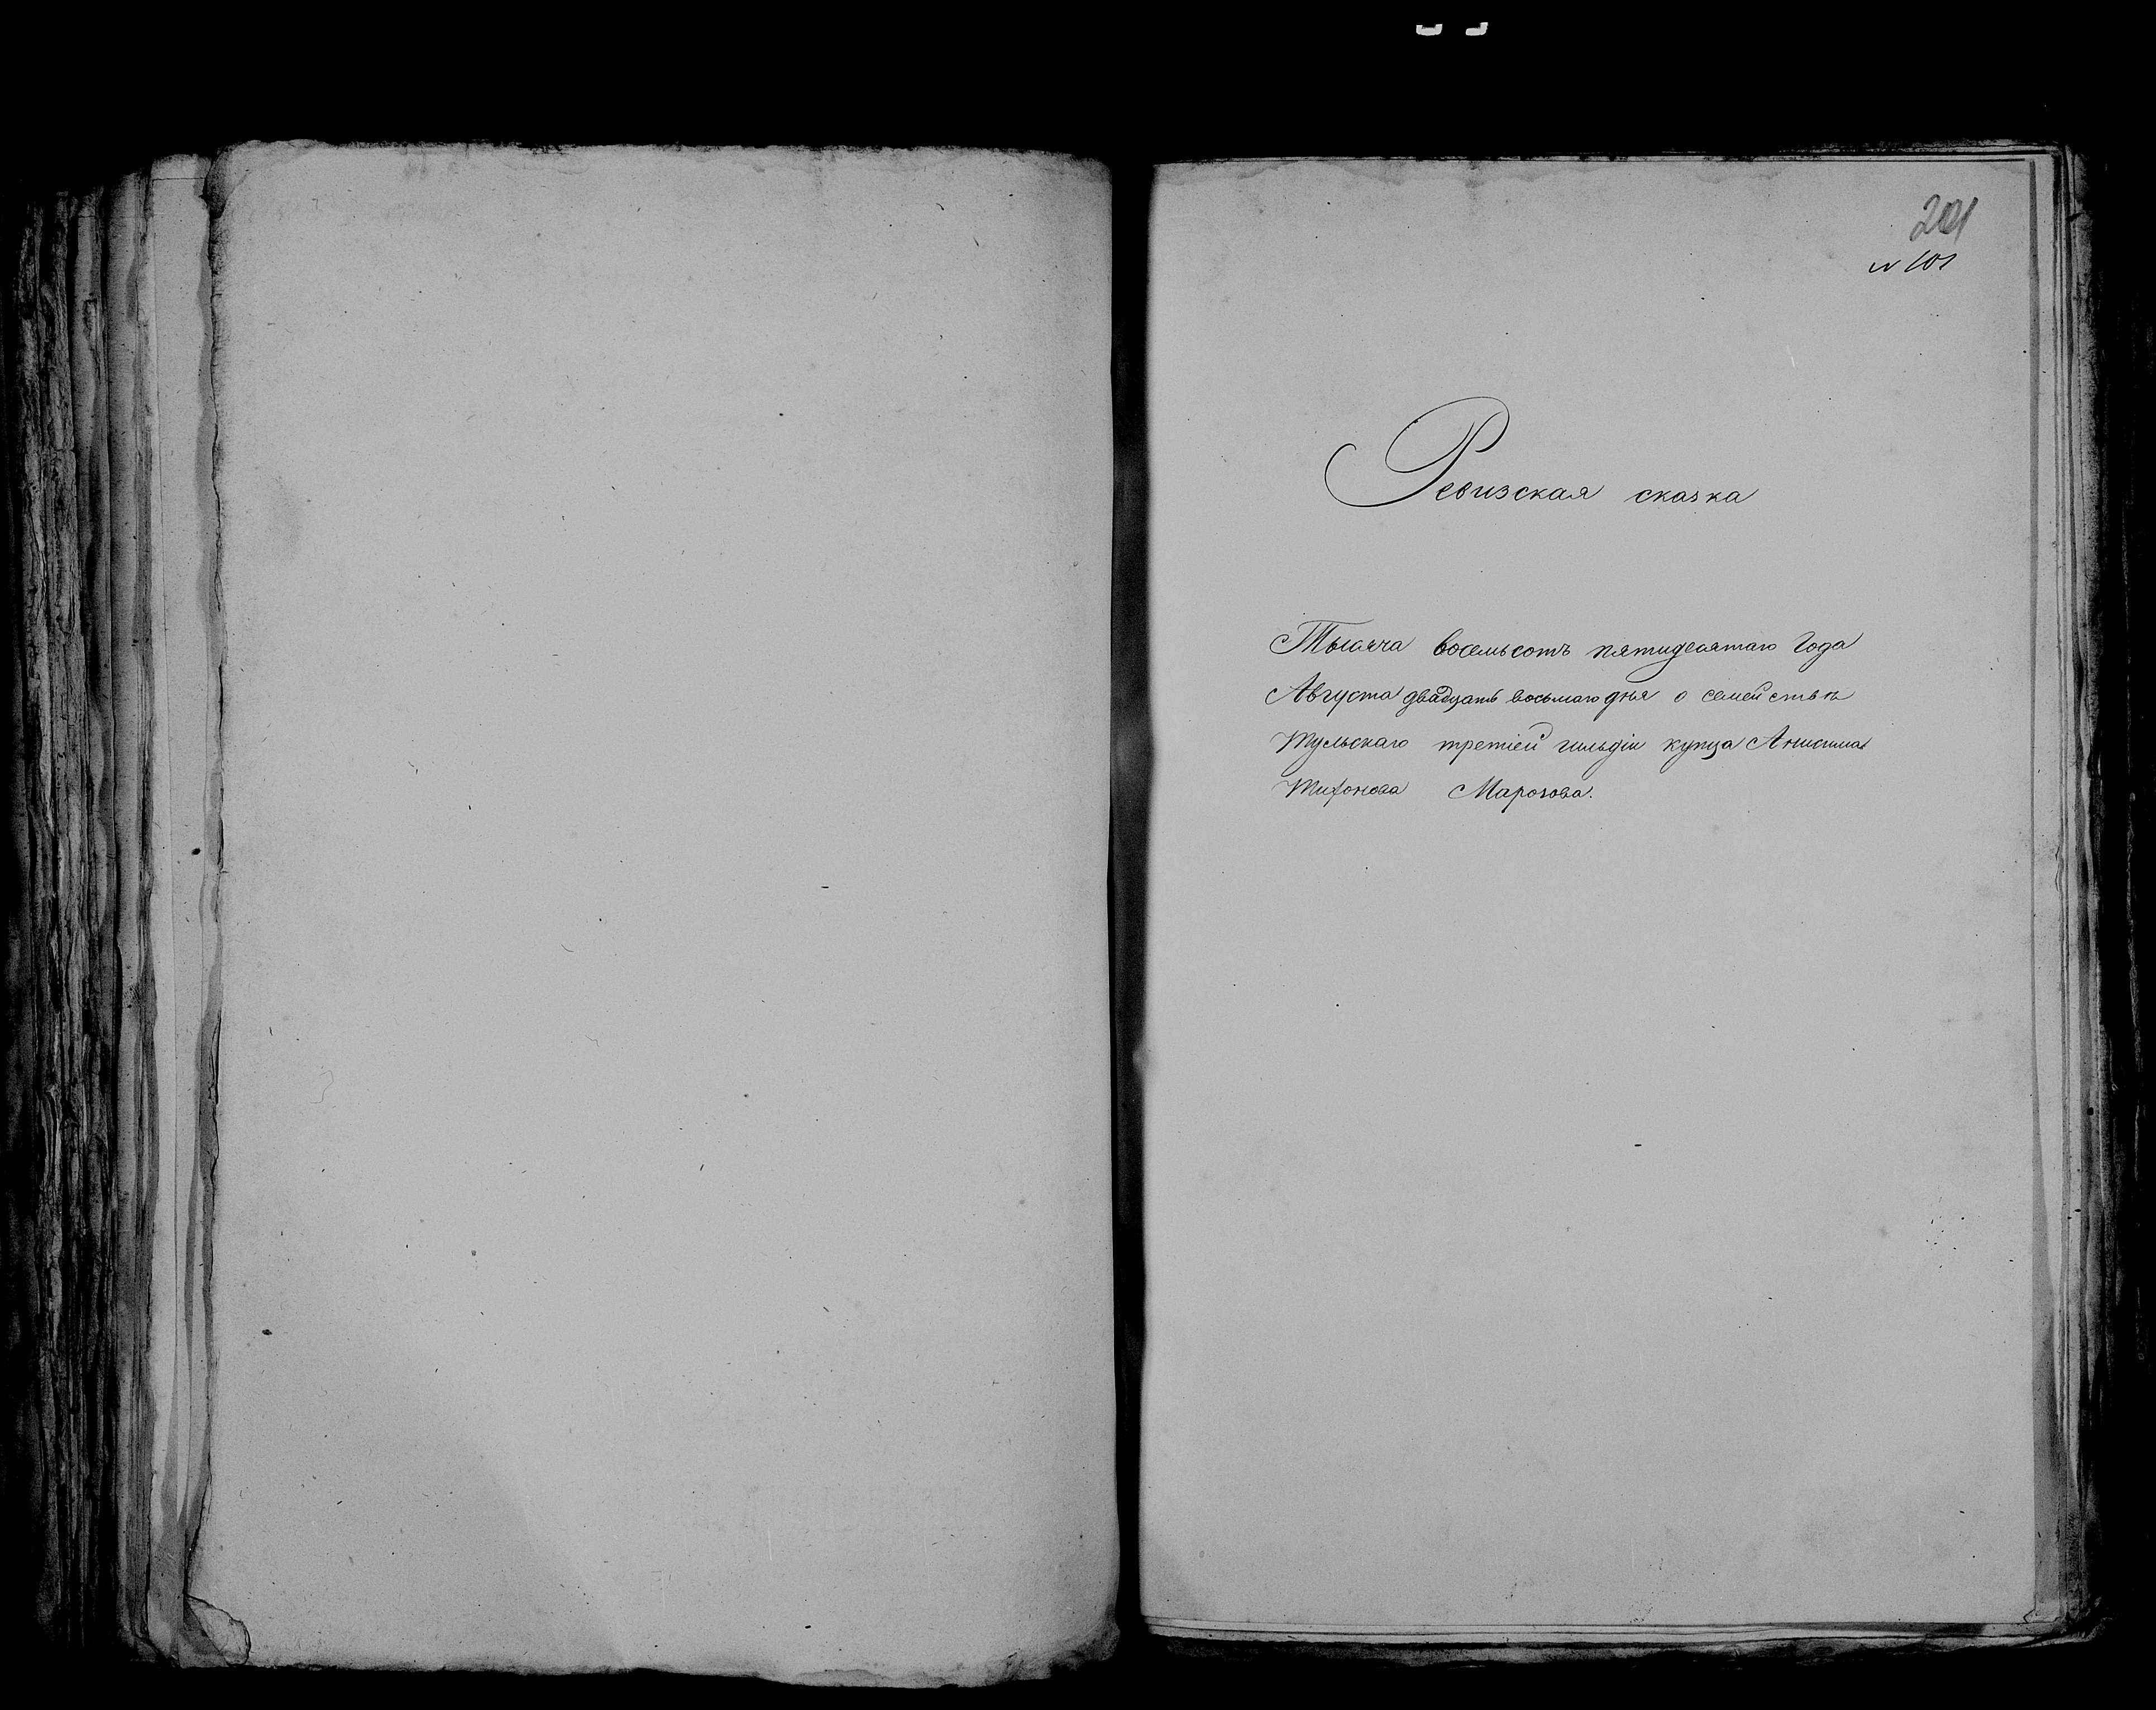 201
№ 101
Ревизская сказка
Тысяча восемьсотъ пятидесятаго Года
Августа двадцать восьмаго дня о семействѣ
Тульскаго третіей гильдіи купца Анисима
Тихонова Марозова.